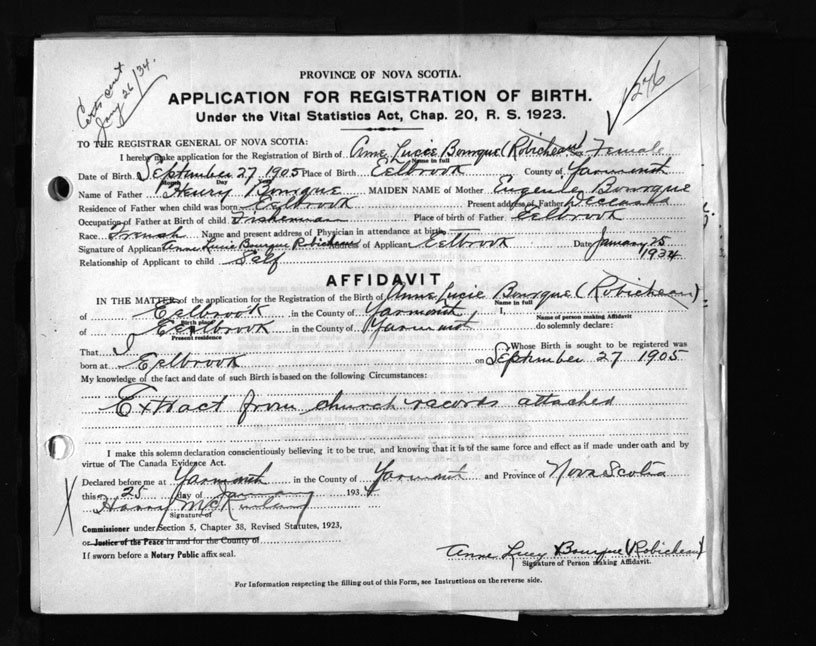 Certs sent
Jany 26/34.
1276
PROVINCE OF NOVA SCOTIA.
APPLICATION FOR REGISTRATION OF BIRTH.
Under the Vital Statistics Act, Chap. 20, R. S. 1923.
TO THE REGISTRAR GENERAL OF NOVA SCOTIA:
I hereby make application for the Registration of Birth of Anne Lucie Bourque (Robicheau) Female
Name in full
Date of Birth September 27 1905 Place of Birth Eelbrook County of Yarmouth
Month Day
Name of Father Henry Bourque MAIDEN NAME of Mother Eugenie Bourque
Residence of Father when child was born Eelbrook Present address of Father Deceased
Occupation of Father at Birth of child Fisherman Place of birth of Father Eelbrook
Race French Name and present address of Physician in attendance at birth
Signature of Applicant Anne Lucie Bourque Robicheau Address of Applicant Eelbrook Date January 25
1934
Relationship of Applicant to child Self
AFFIDAVIT
IN THE MATTER of the application for the Registration of the Birth of Anne Lucie Bourque (Robicheau)
Name in full
of Eelbrook in the County of Yarmouth I,
Birth place Name of person making Affidavit
of Eelbrook in the County of Yarmouth do solemnly declare:
Present residence
That I Whose Birth is sought to be registered was
born at Eelbrook on September 27 1905
My knowledge of the fact and date of such Birth is based on the following Circumstances:
Extract from church records attached
I make this solemn declaration conscientiously believing it to be true, and knowing that it is of the same force and effect as if made under oath and by
virtue of The Canada Evidence Act.
Declared before me at Yarmouth in the County of Yarmouth and Province of Nova Scotia
this 25 day of January 1934
X Harry McK
Signature of
Commissioner under Section 5, Chapter 38, Revised Statutes, 1923,
or Justice of the Peace in and for the County of
If sworn before a Notary Public affix seal.
Anne Lucy Bourque (Robicheau)
Signature of Person making Affidavit.
For Information respecting the filling out of this Form, see Instructions on the reverse side.